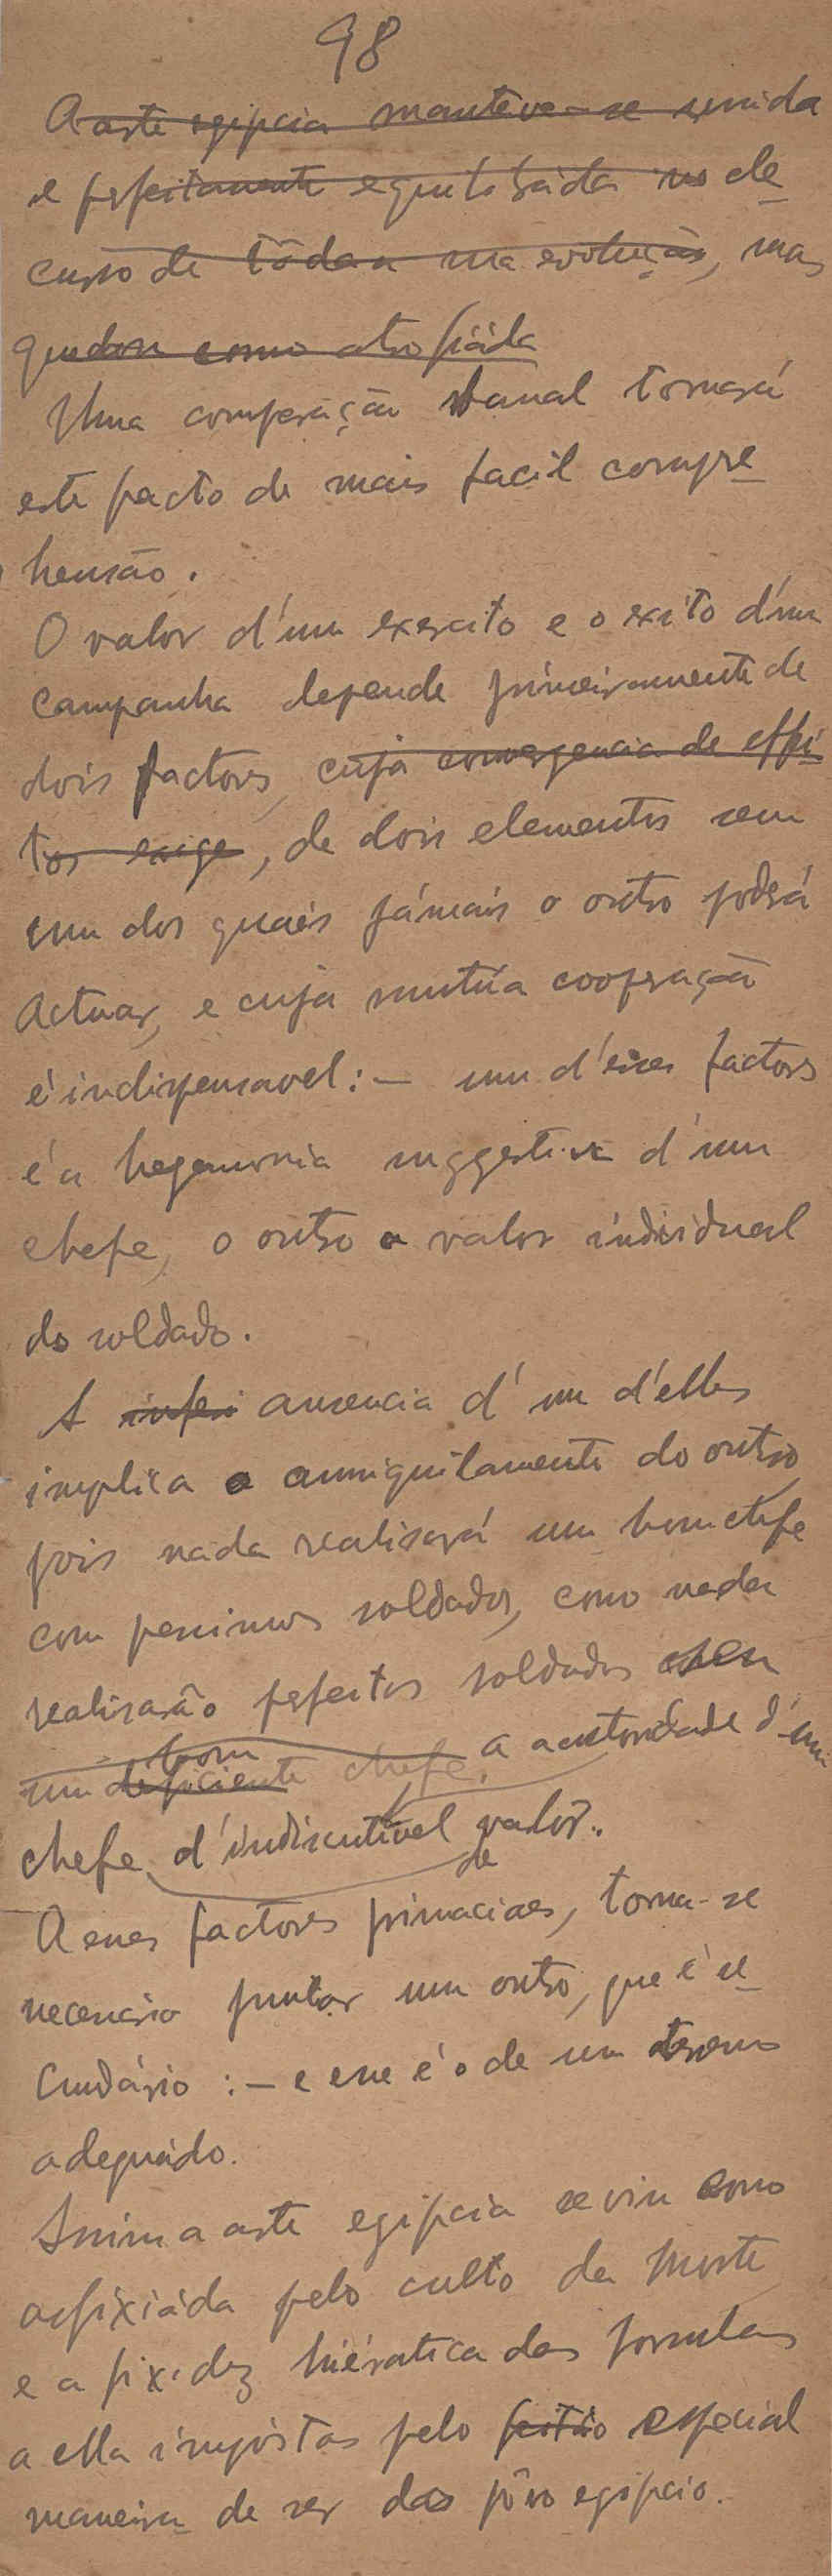 98
A arte egipcia manteve-se unida
e perfeitamente equilibrada no de
curso de tôda a sua evolução, mas
quedou como atrofiáda
Uma comparação banal tornará
este facto de mais facil compre
hensão.
O valor d'um exercito e o exito d'uma
campanha depende primeiramente de
dois factores, cuja convergencia de effei
tos exige, de dois elementos sem
um dos quaes jámais o outro poderá
actuar, e cuja mutúa cooperação
é indispensavel: — um d'esses factores
é a hegemonia suggestiva d'um
chefe, o outro o valor individual
do soldado.
A ausencia d'um d'elles
implica o anniquilamento do outro,
pois nada realisará um bom chefe
com pessimos soldados, como nada
realisarão perfeitos soldados sem
bom
um deficiente chefe, a auctoridade d'um
chefe d'indiscutivel valor.
de
A esses factores primaciaes, torna-se
necessario juntar um outro, que é se
cundário: — e esse é o de um terreno
adequádo.
Assim a arte egipcia se viu como
asfixiáda pelo culto da morte
e a fixidez hiératica das formulas
a ella impóstas pelo feitio especial
maneira de ser do pôvo egipcio.